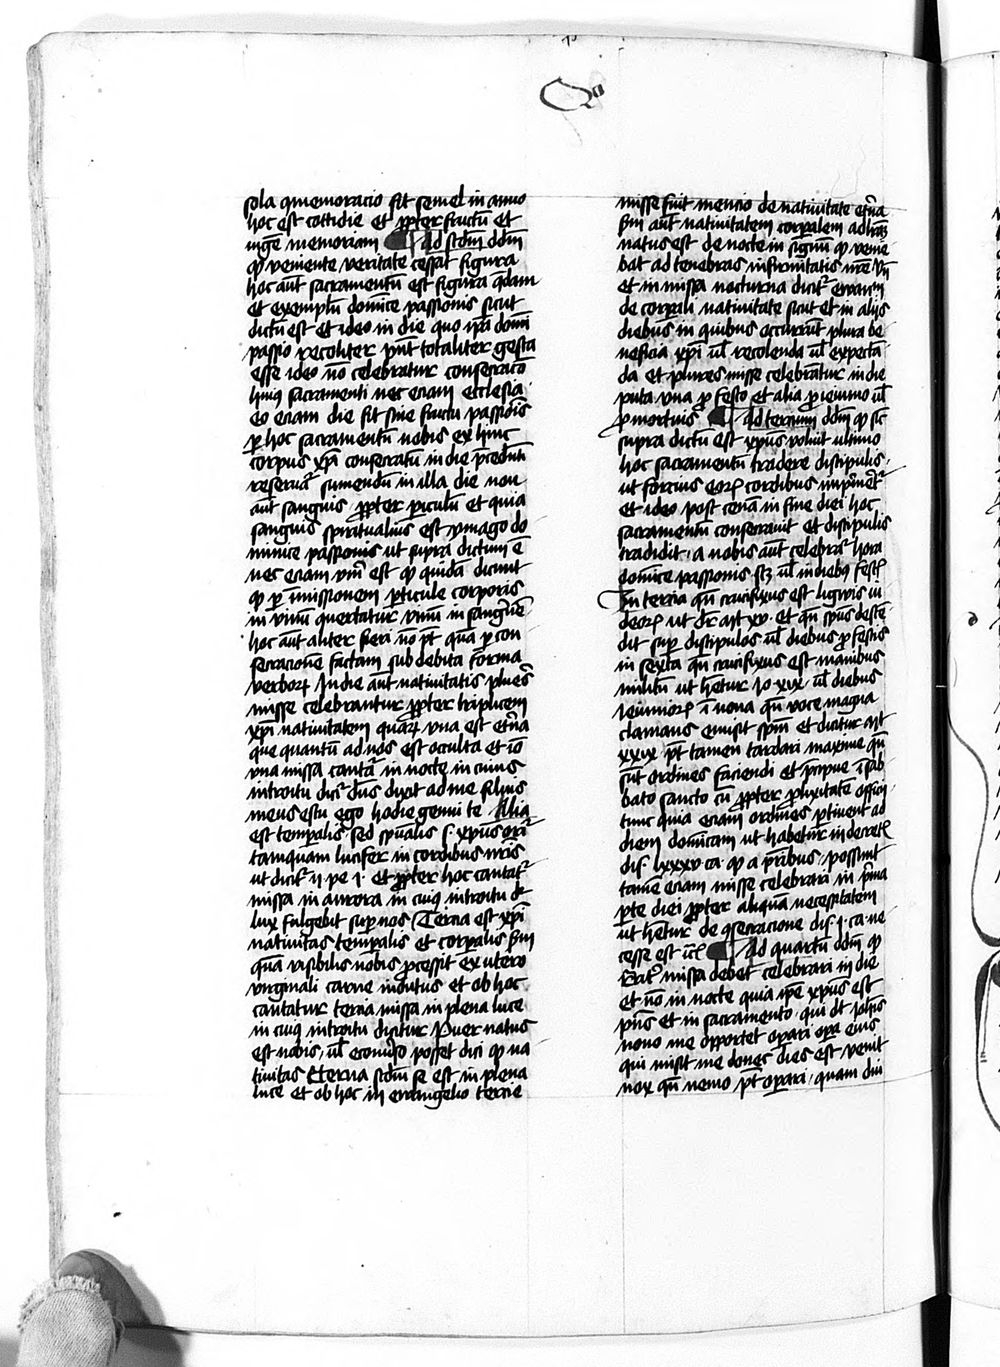 Qa
sola qmemoracio fit semel in anno
hoc est cottidie et ppter fructū et
iugē memoriam Ad scdm ddm
qͥ veniente veritate cessat figura
hoc aūt sacramentū est figura qdam
et exemplū dominice passionis sicut
dictū est et ideo in die quo ipā domī
passio recolitur put totaliter gesta
esse ideo nō celebratur consecracō
huiꝰ sacramenti nec eciam ecclesia
eo eciam die sit sine fructu passiōis
p hoc sacramentū nobis ex hinc
corpus xpī consecratū in die pcedēti
reseruat᷑ sumendū in illa die non
aūt sanguis ppter piculū et quia
sanguis spiritualius est ymago do
minice passionis ut supra dictum ē
nec eciam vm̄ est qͥ quidā dicunt
qͥ p īmissionem pticule corporis
in vinū quertatur vinū in sanguīē
hoc aūt aliter fieri nō pt quā p con
secracionē factam sub debita forma
verboꝝ In die aūt natiuitatis plures
misse celebrantur ppter triplicem
xpī natiuitatem quaꝝ vna est etn̄a
que quantū ad nos est oculta et iō
vna missa cantat᷑ in nocte in cuius
introitu dicit᷑ dn̄s dixit ad me filius
meus es tu ego hodie genui te Alia
est tempalis sed spūalis s. xpūs orit᷑
tamquam lucifer in cordibus nr̄is
ut dicit᷑ ii pe i. et ppter hoc cantat᷑
missa in aurora in cuiꝰ introitu dr̄
lux fulgebit sup nos Tercia est xpī
natiuitas tempalis et corpalis scdm
quā visibilis nobis pcessit ex utero
virginali carne indutus et ob hoc
cantatur tercia missa in plena luce
in cuiꝰ introitu dicitur Puer natus
est nobis, ul̄ econuerso posset dici qͥ na
tiuitas eterna scdm se est in plena
luce et ob hoc in ewangelio tercie
misse fuit mencio de natiuitate etn̄a
scdm aūt natiuitatem corpalem ad lrām
natus est de nocte in signū qͥ venie
bat ad tenebras infirmitatis nr̄e vn̄
et in missa nocturna dicit᷑ ewanm̄
de corpali natiuitate sicut et in alijs
diebus in quibus occurrūt plura be
neficia xpī ul̄ recolenda ul̄ expectā
da et plures misse celebrātur in die
puta vna p festo et alia p ieiunio ul̄
p mortuis Ad tercium ddm qͥ sic
supra dictū est xpūs voluit ultimo
hoc sacramentū tradere discipulis
ut forcius eoꝝ cordibus imprimet᷑
et ideo post cenā in fine diei hoc
sacramentū consecrauit et discipulis
tradidit, a nobis aūt celebrat᷑ hora
dominice passionis scꝫ ul̄ in diebꝰ festis
In tercia qn̄ crucifixus est ligwis iu
deoꝝ ut dr̄ mr̄ xv. et qn̄ spūs descē
dit sup discipulos ul̄ diebus p festis
in sexta qn̄ crucifixus est manibus
militū ut hētur Jo xix. ul̄ diebus
ieiunioꝝ ī nona qn̄ voce magna
clamans emisit spm̄ et dicitur mt
xxvii pt tamen tardari maxime qn̄
sūt ordines faciendi et pcipue ī sab
bato sancto tū ppter plixitatē officij
tunc quia eciam ordines ptinent ad
diem dominicam ut habetur in decretꝭ
dis. lxxxv ca. qͥ a pribus, possunt
tamē eciam misse celebrari in pma
pte diei ppter aliquā necessitatem
ut hētur de qsecracione dis. j. ca. ne
cesse est etc̄ Ad quartū ddm qͥ
missa debet celebrari in die
et nō in nocte quia ipē xpūs est
pn̄s et in sacramento qui dt Johīs
nono me opportet opari opa eius
qui misit me donec dies est venit
nox qn̄ nemo pt opari, quam diu